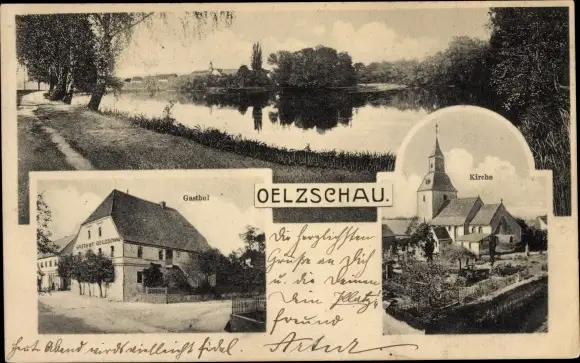 OELZSCHAU.
Gasthof
Kirche
GASTHOF OELZSCHAU
Die herzlichsten
Grüße an Dich
u. die Deinen
Dein
freund
Artur
Heut Abend wirds vielleicht fidel.